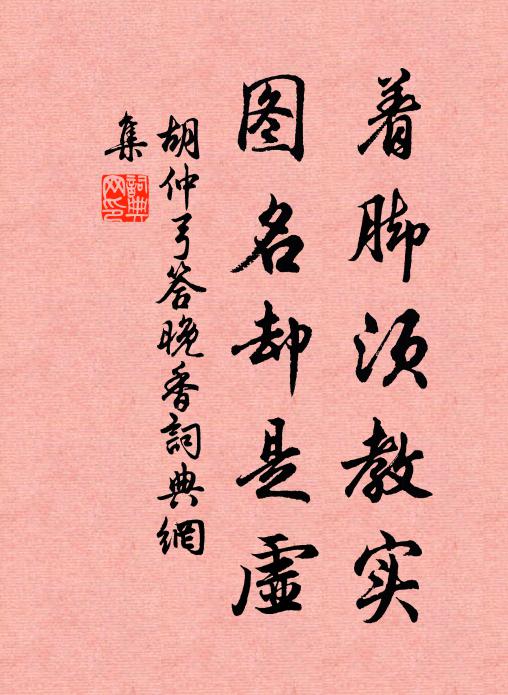 着脚须教实
图名却是虚
胡仲弓答晚香詞典網
集
詞典网印